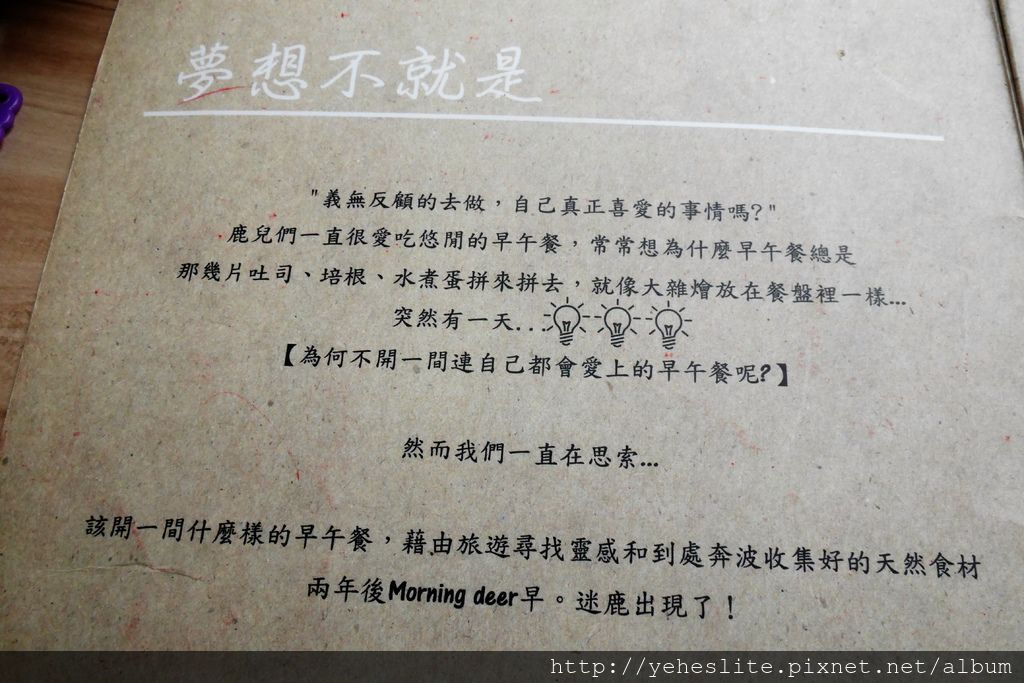 夢想不就是
"義無反顧的去做，自己真正喜愛的事情嗎?"
鹿兒們一直很愛吃悠閒的早午餐，常常想為什麼早午餐總是
那幾片吐司、培根、水煮蛋拼來拼去，就像大雜燴放在餐盤裡一樣...
突然有一天...
【為何不開一間連自己都會愛上的早午餐呢?】
然而我們一直在思索...
該開一間什麼樣的早午餐，藉由旅遊尋找靈感和到處奔波收集好的天然食材
兩年後Morning deer早。迷鹿出現了！
http://yeheslite.pixnet.net/album